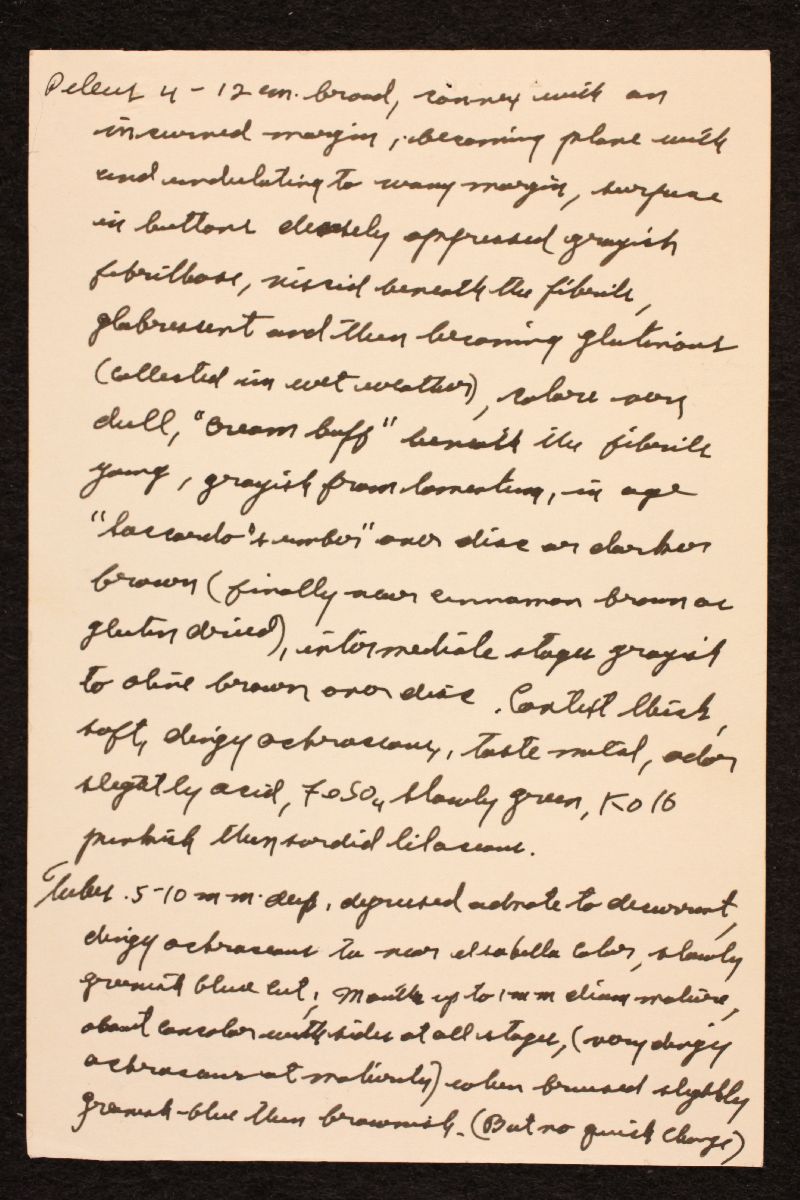 Pileus 4 - 12 cm. broad, convex with an
incurved margin, becoming plane with
and undulating to wavy margin, surface
in buttons densely appressed grayish
fibrillose, viscid beneath the fibrils,
glabrescent and then becoming glutinous
(collected in wet weather), colors very
dull, "cream buff" beneath the fibrils
young, grayish from tomentum, in age
"Saccardo's umber" over disc or darker
brown (finally near cinnamon brown as
gluten dried), intermediate stages grayish
to olive brown over disc. Context thick,
soft, dingy ochraceous, taste metal, odor
slightly acid, FeSO4 slowly green, KOH
pinkish then sordid lilaceous.
Tubes .5-10 mm. deep, depressed adnate to decurrent,
dingy ochraceous to near isabella color, slowly
greenish blue cut; Mouths up to 1 mm diam mature,
about concolor with sides at all stages, (very dingy
ochraceous at maturity) when bruised slightly
greenish-blue then brownish. (But no quick change)